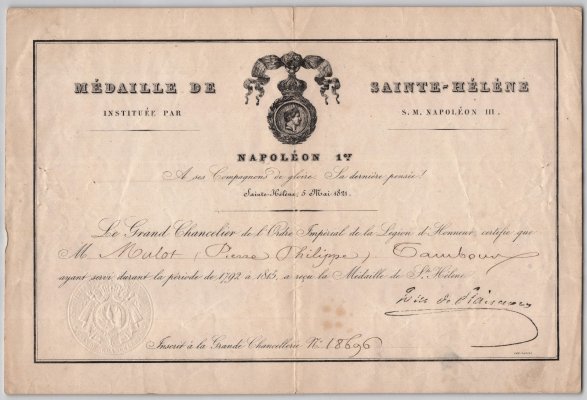 MÉDAILLE DE SAINTE-HÉLÈNE
INSTITUÉE PAR S. M. NAPOLÉON III.
NAPOLÉON 1er
A ses Compagnons de gloire. Sa dernière pensée!
Sainte-Hélène, 5 Mai 1821.
Le Grand Chancelier de l'Ordre Impérial de la Légion d'Honneur, certifie que
M. Mulot (Pierre Philippe) Tambour
ayant servi durant la période de 1792 à 1815, a reçu la Médaille de Ste Hélène.
Duc de Plaisance
Inscrit à la Grande Chancellerie No 18696